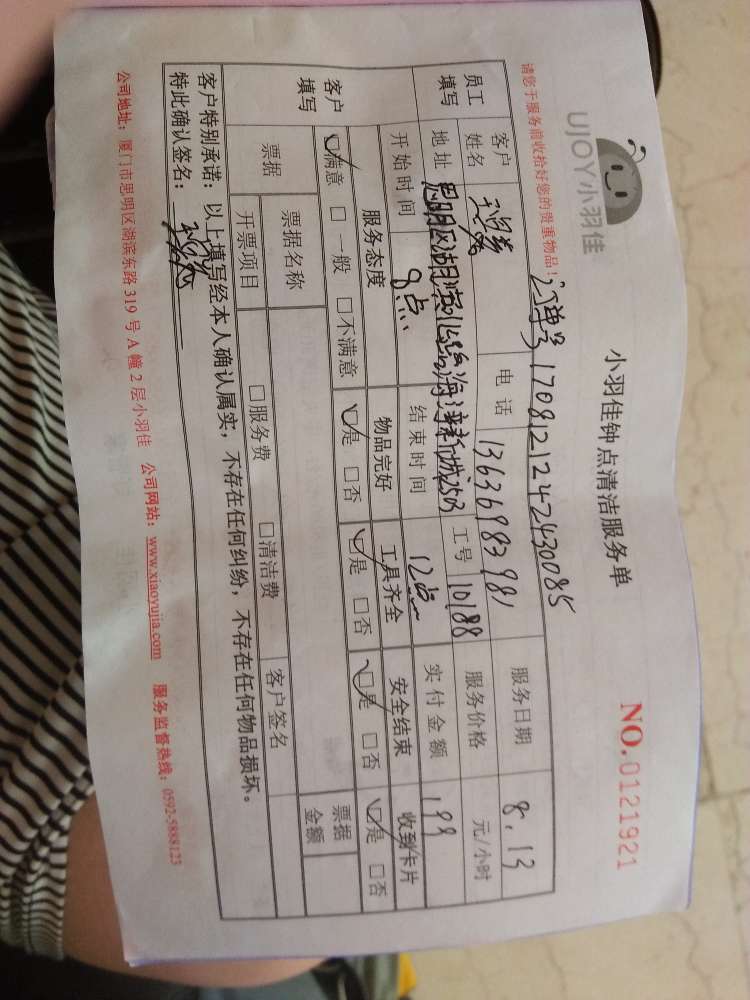 UJOY小羽佳
小羽佳钟点清洁服务单
NO.0121921
请您于服务前收拾好您的贵重物品!
订单号 1708121242430085
员工填写 客户姓名 电话 13636983981 服务日期 8.13
地址 思明区湖滨 海湾新城2503 工号 10188 服务价格 元/小时
开始时间 8点 结束时间 12点 实付金额 199
客户填写 服务态度 物品完好 工具齐全 安全结束 收到卡片
☑满意 □一般 □不满意 ☑是 □否 ☑是 □否 ☑是 □否 ☑是 □否
票据 票据名称 客户签名 票据金额
开票项目 □服务费 □清洁费
客户特别承诺:以上填写经本人确认属实,不存在任何纠纷,不存在任何物品损坏。
特此确认签名:
公司地址:厦门市思明区湖滨东路319号A幢2层小羽佳 公司网站:www.xiaoyujia.com 服务监督热线:0592-5888123